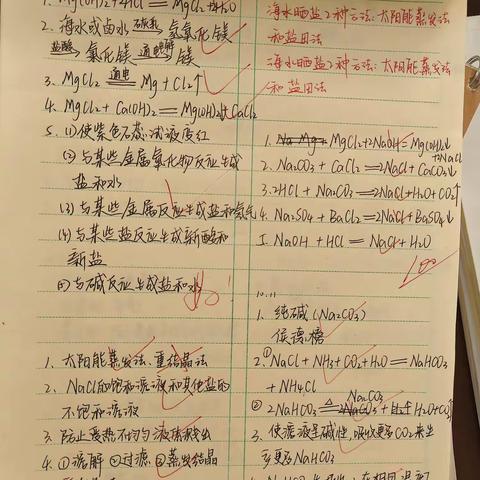 1. Mg(OH)₂+2HCl = MgCl₂+2H₂O
2. 海水或卤水 石灰乳 氢氧化镁
盐酸 氯化镁 通电 镁
3. MgCl₂ 通电 Mg + Cl₂↑
4. MgCl₂ + Ca(OH)₂ = Mg(OH)₂↓+CaCl₂
5. (1) 使紫色石蕊试液变红
(2) 与某些金属氧化物反应生成
盐和水
(3) 与某些金属反应生成盐和氢气
(4) 与某些盐反应生成新酸和
新盐
(5) 与碱反应生成盐和水
1. 太阳能蒸发法、重结晶法
2. NaCl的饱和溶液和其他盐的
不饱和溶液
3. 防止受热不均匀液体溅出
4. ①溶解 ②过滤 ③蒸发结晶
海水晒盐2种方法:太阳能蒸发法
和盐田法
海水晒盐2种方法:太阳能蒸发法
和盐田法
1. MgCl₂+2NaOH = Mg(OH)₂↓
+2NaCl
2. Na₂CO₃ + CaCl₂ = 2NaCl + CaCO₃↓
3. 2HCl + Na₂CO₃ = 2NaCl+H₂O+CO₂↑
4. Na₂SO₄ + BaCl₂ = 2NaCl + BaSO₄↓
5. NaOH + HCl = NaCl + H₂O
100
10.11
1. 纯碱 (Na₂CO₃)
侯德榜
2. ① NaCl + NH₃ + CO₂+H₂O = NaHCO₃
+ NH₄Cl
② 2NaHCO₃ △ Na₂CO₃ + H₂O+CO₂↑
3. 使溶液呈碱性,吸收更多CO₂来生
多更多NaHCO₃